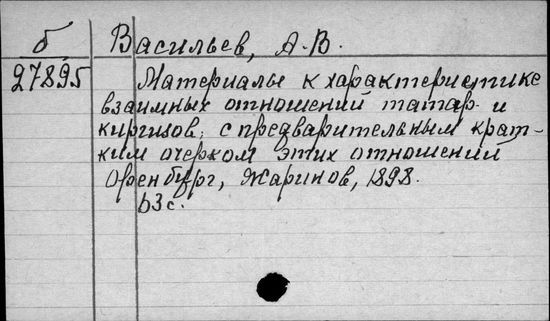 б Васильев, А.В.
27895 Материалы к характеристике
взаимных отношений татар и
киргизов, с предварительным крат-
ким очерком этих отношений
Оренбург, Жаринов, 1898.
63с.